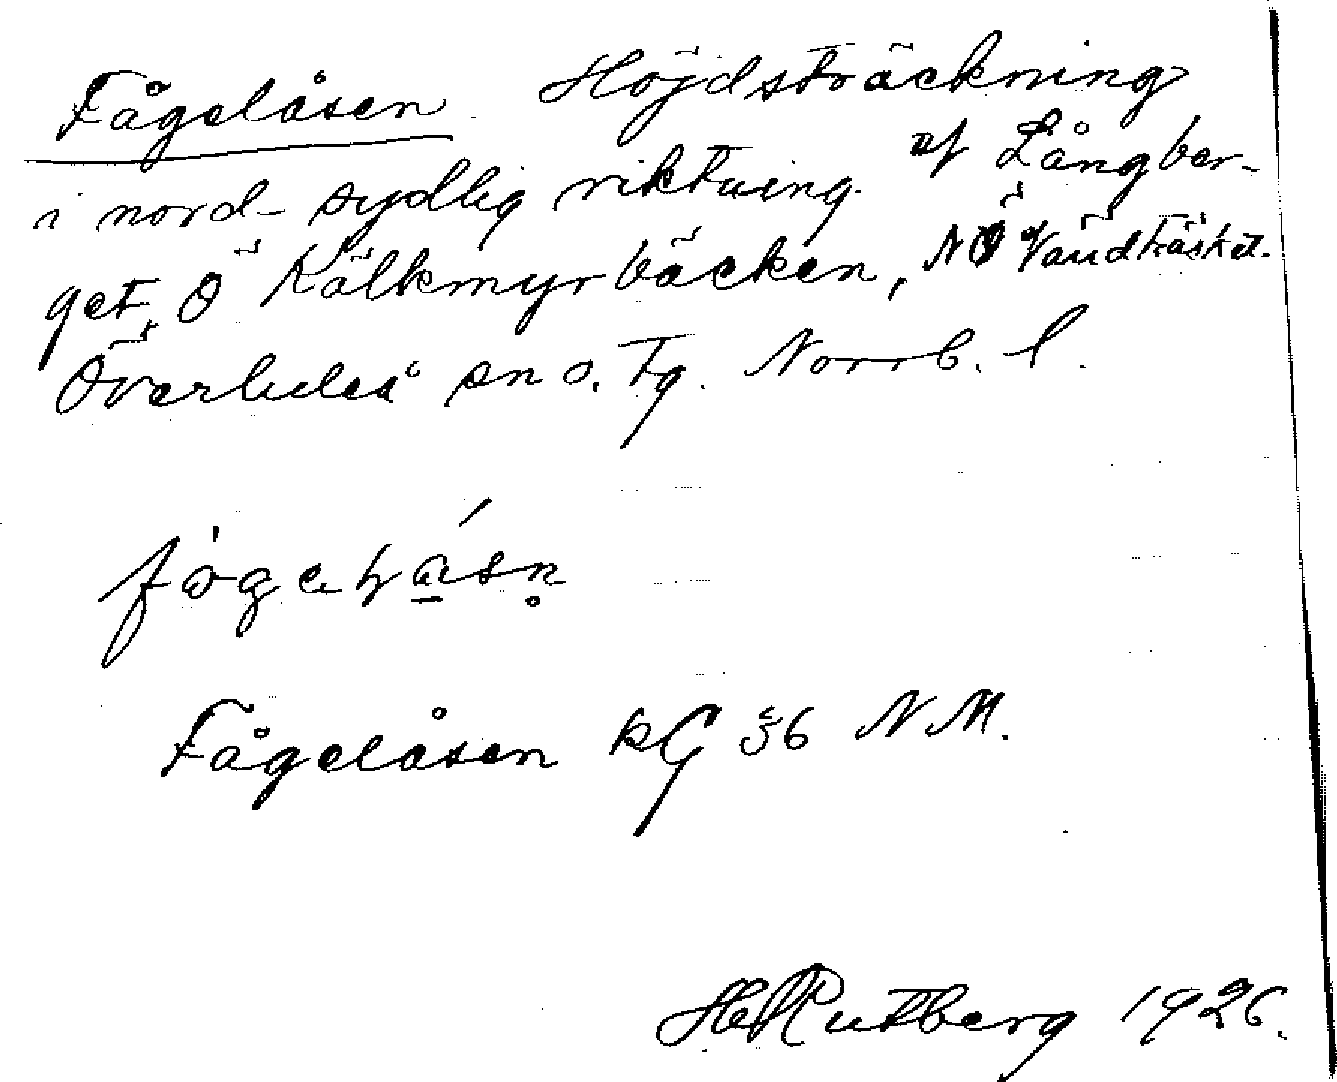 Fågelåsen Höjdsträckning
i nord-sydlig riktning af Långber-
get, Ö Kälkmyrbäcken, NÖ Vändträsket.
Överluleå sn o. tg. Norrb. l.
Fågelåsen kG 36 NM.
H Rutberg 1926.